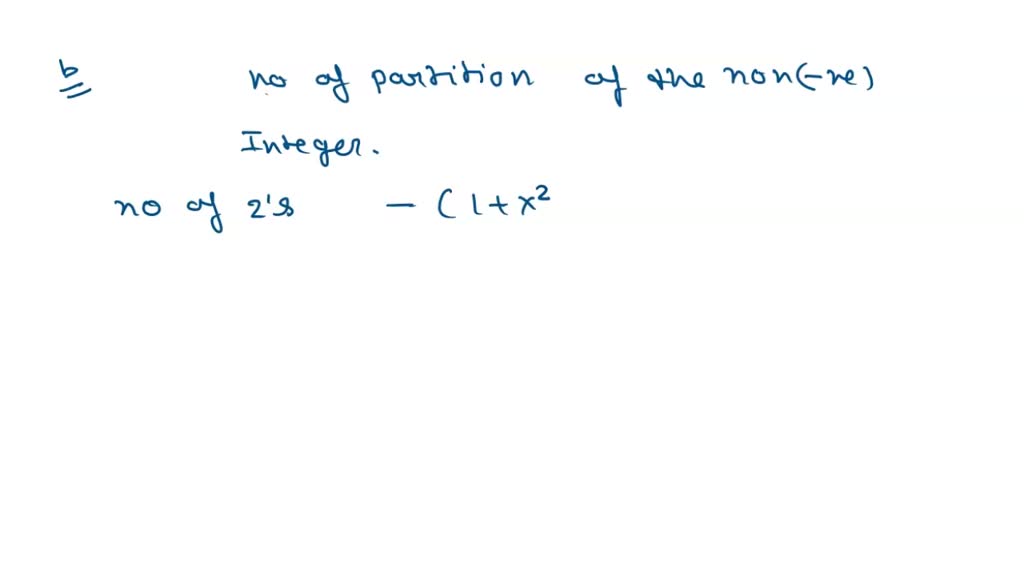 b
no of partition of the non(-ve)
Integer.
no of 2's - (1+x²